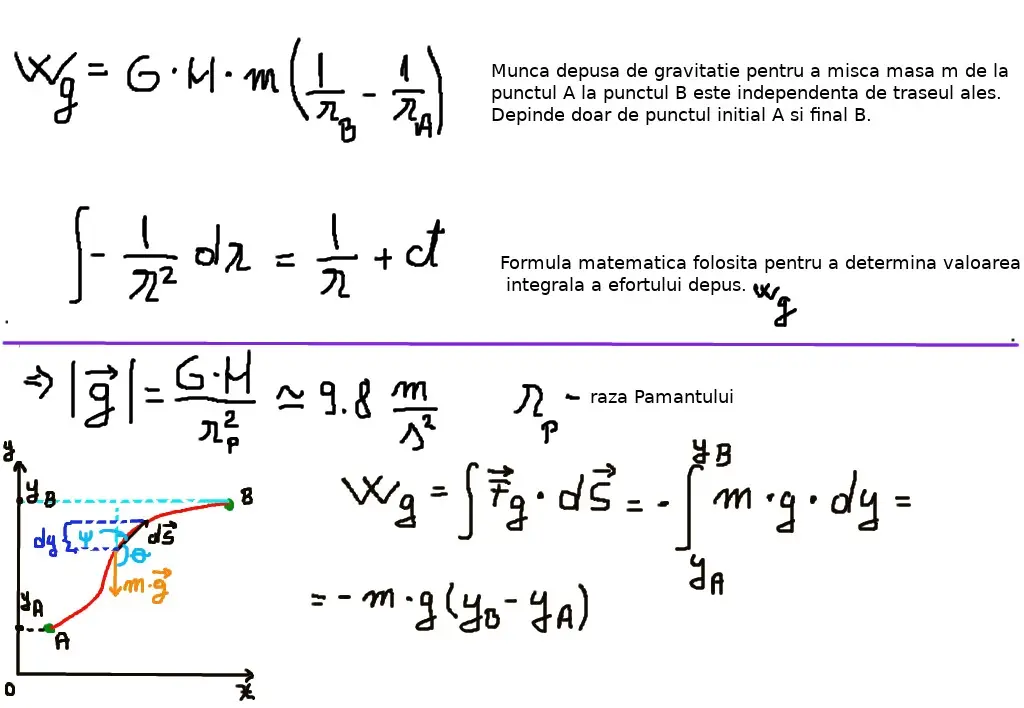 W_g = G · M · m (1/r_B - 1/r_A)
Munca depusa de gravitatie pentru a misca masa m de la
punctul A la punctul B este independenta de traseul ales.
Depinde doar de punctul initial A si final B.
∫ - 1/r² dr = 1/r + ct
Formula matematica folosita pentru a determina valoarea
integrala a efortului depus. W_g
⇒ |g⃗| = G·M/r_P² ≃ 9.8 m/s²
r_P - raza Pamantului
y
y_B
B
dy { ψ
ds⃗
θ
m·g⃗
y_A
A
O
x
W_g = ∫ F⃗_g · dS⃗ = - ∫_{y_A}^{y_B} m · g · dy =
= - m · g (y_B - y_A)